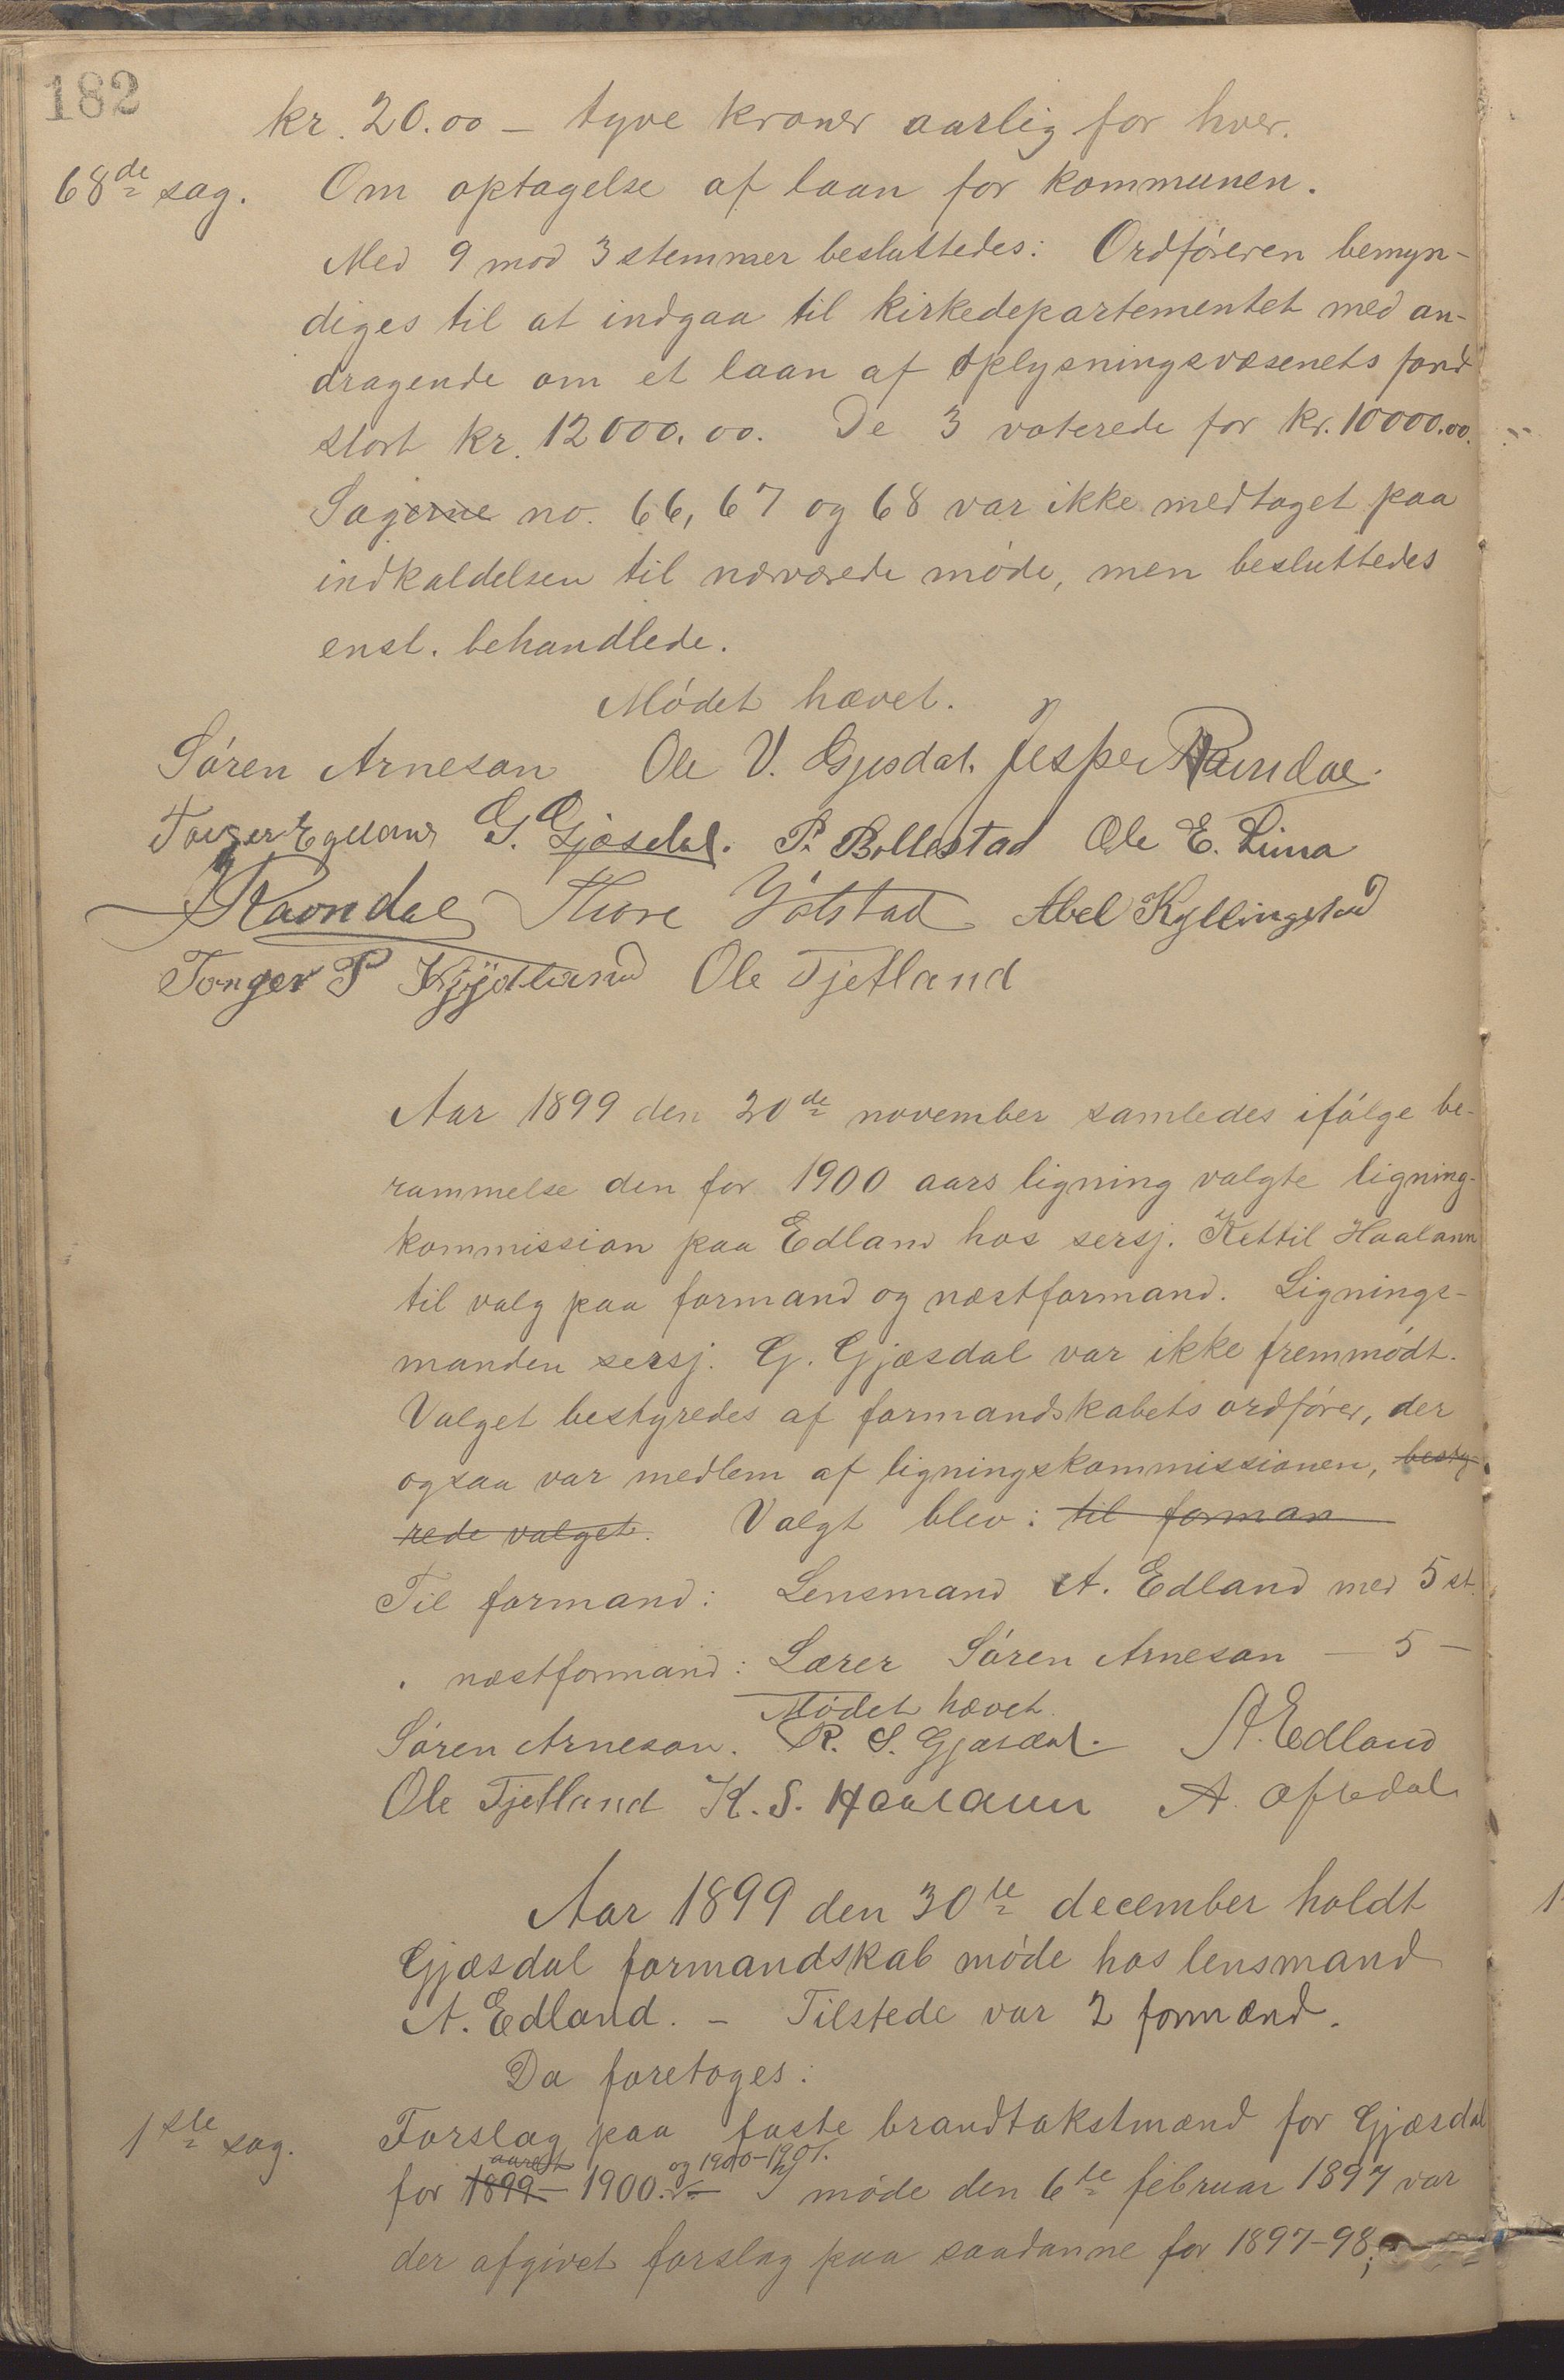 182
kr. 20.00 – tyve kroner aarlig for hver.
68de sag. Om optagelse af laan for kommunen.
Med 9 mod 3 stemmer besluttedes: Ordføreren bemyn-
diges til at indgaa til kirkedepartementet med an-
dragende om et laan af oplysningsvæsenets fond
stort kr. 12000.00. De 3 voterede for kr. 10000.00.
Sagerne no. 66, 67 og 68 var ikke medtaget paa
indkaldelsen til nærværede møde, men besluttedes
enst. behandlede.
Mødet hævet.
Søren Arneson Ole V. Gjesdal. Jesper Ravndal.
Torger Eglland G. Gjæsdal. P. Bollestad Ole E. Lima
Ravndal Thore Ydstad Abel Kyllingstad
Torger P Kydland Ole Tjetland
Aar 1899 den 20de november samledes ifølge be-
rammelse den for 1900 aars ligning valgte ligning-
kommission paa Edland hos sersj. Kettil Haaland
til valg paa formand og næstformand. Lignings-
manden sersj. G. Gjæsdal var ikke fremmødt.
Valget bestyredes af formandskabets ordfører, der
ogsaa var medlem af ligningskommissionen, besty-
rede valget. Valgt blev: til forman
Til formand: Lensmand A. Edland med 5 st.
. næstformand: Lærer Søren Arneson – 5 –
Mødet hævet.
Søren Arneson. R. S. Gjæsdal. A. Edland
Ole Tjetland K. S. Haaland A. Ofsdal
Aar 1899 den 30te december holdt
Gjæsdal formandskab møde hos lensmand
A. Edland. – Tilstede var 2 formænd.
Da foretoges:
1ste sag. Forslag paa faste brandtakstmænd for Gjæsdal
aaret og 1900–1901.
for 1899– 1900. – I møde den 6te februar 1897 var
der afgivet forslag paa saadanne for 1897–98;